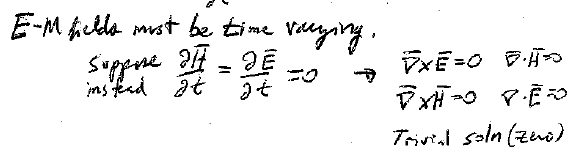 E-M fields must be time varying.
Suppose instead ∂H̄/∂t = ∂Ē/∂t = 0 → ∇̄×Ē=0 ∇̄·H̄=0
∇̄×H̄=0 ∇·Ē=0
Trivial soln (zero)